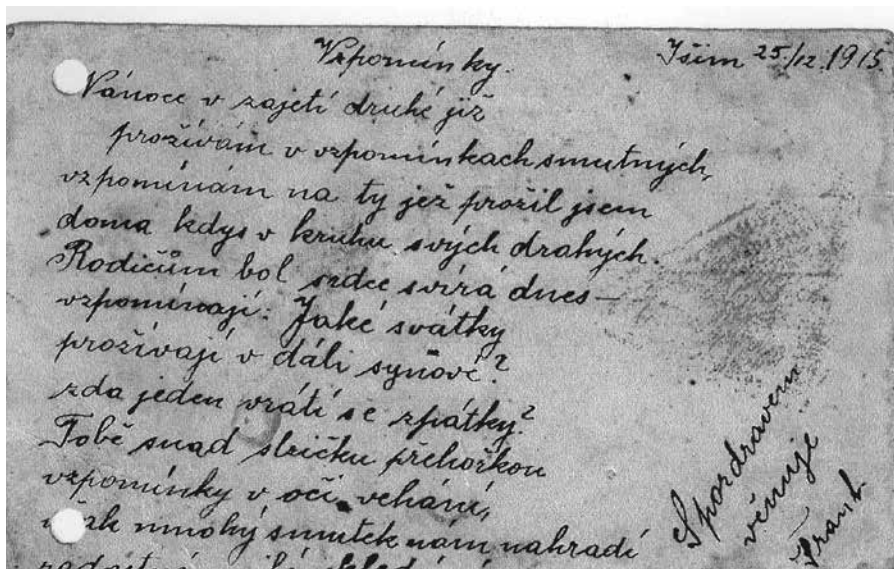 Vzpomínky.
Išim 25./12. 1915.
Vánoce v zajetí druhé již
prožívám v vzpomínkach smutných,
vzpomínám na ty jež prožil jsem
doma kdys v kruhu svých drahých.
Rodičům bol srdce svírá dnes –
vzpomínají: Jaké svátky
prožívají v dáli synové?
zda jeden vrátí se zpátky?
Tobě snad slzičku přehořkou
vzpomínky v očí vehání,
mnohý smutek nám nahradí
S pozdravem
věnuje
Frant.